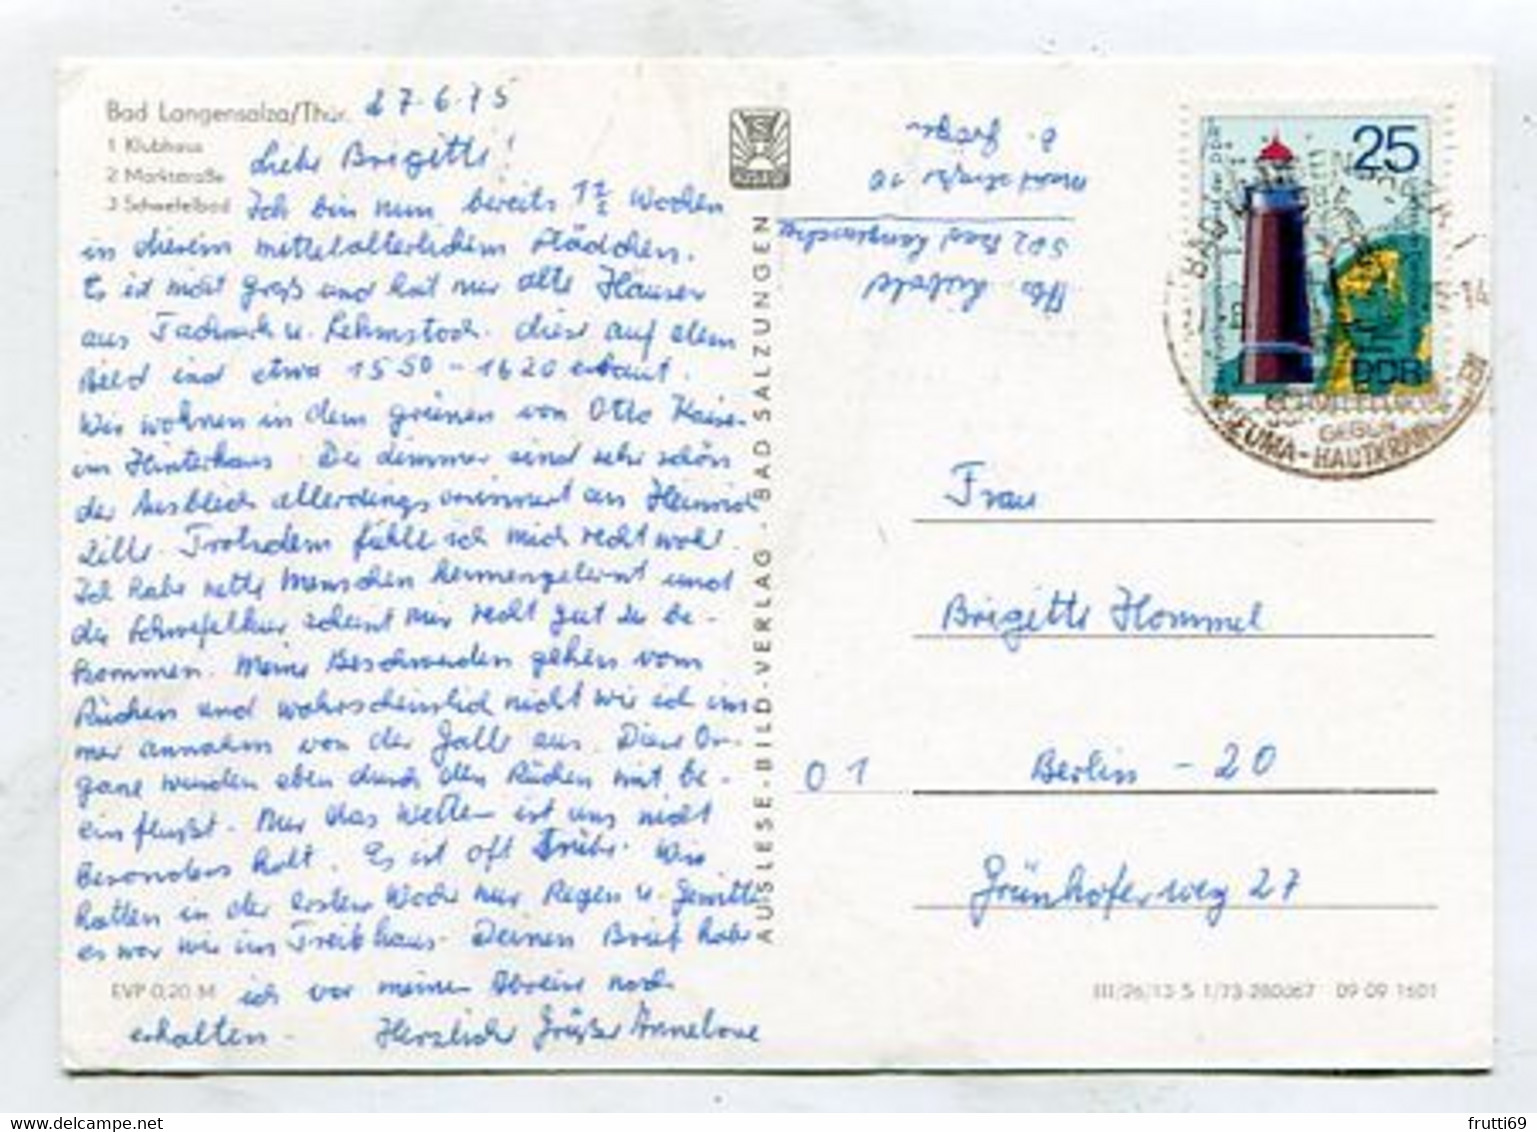 Bad Langensalza/Thür.
1 Klubhaus
2 Marktstraße
3 Schwefelbad
27.6.75
Liebe Brigitte!
Ich bin nun bereits 1 1/2 Wochen
in diesem mittelalterlichem Städtchen.
Es ist nicht groß und hat nur alte Häuser
aus Fachwerk u. Lehmstock. diese auf dem
Bild sind etwa 1550 - 1620 erbaut.
Wir wohnen in dem grünen von Otto Kaiser
im Hinterhaus. Die Zimmer sind sehr schön
der Ausblick allerdings erinnert an Heinrich
Zille. Trotzdem fühle ich mich recht wohl.
Ich habe nette Menschen kennengelernt und
die Schwefelkur scheint mir recht gut zu be-
kommen. Meine Beschwerden gehen vom
Rücken und wahrscheinlich nicht wie ich im-
mer annahm von der Galle aus. Diese Or-
gane wurden eben durch den Rücken mit be-
einflußt. Nur das Wetter ist uns nicht
besonders hold. Es ist oft trübe. Wir
hatten in der ersten Woche nur Regen u. Gewitter
es war wie im Treibhaus. Deinen Brief habe
ich vor meiner Abreise noch
erhalten. Herzliche Grüße Annelore
EVP 0,20 M
AUSLESE-BILD-VERLAG - BAD SALZUNGEN
502 Bad Langensalza
25
DDR
BAD
GEGEN
RHEUMA-HAUTKRANKHEITEN
14
Frau
Brigitte Hommel
01
Berlin - 20
Grünhoferweg 27
III/26/13 S 1/73 280067 09 09 1601
delcampe.net
frutti69